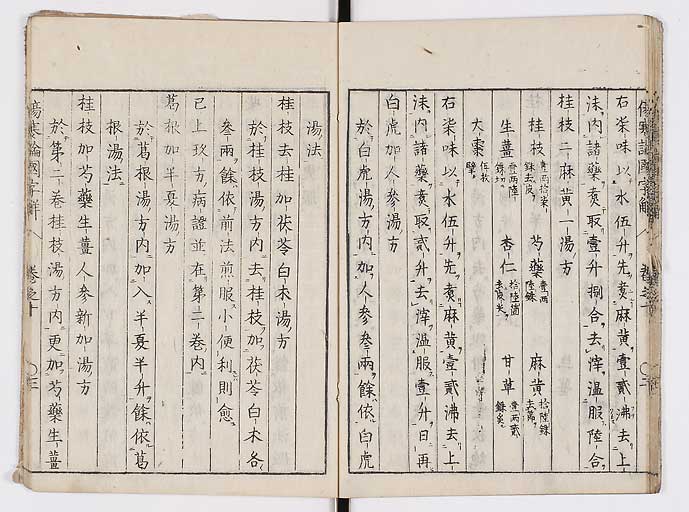 右柒味以水伍升先煮麻黄壹貳沸去上
沫内諸藥煮取壹升捌合去滓温服陸合
桂枝二麻黄一湯方
桂枝 壹兩拾柒銖去皮 芍藥 壹兩陸銖 麻黄 拾陸銖去節
生薑 壹兩陸銖切 杏仁 拾陸箇去皮尖 甘草 壹兩貳銖炙
大棗 伍枚擘
右柒味以水伍升先煮麻黄壹貳沸去上
沫内諸藥煮取貳升去滓温服壹升日再
白虎加人參湯方
於白虎湯方内加人參叁兩餘依白虎
湯法
桂枝去桂加茯苓白朮湯方
於桂枝湯方内去桂枝加茯苓白朮各
叁兩餘依前法煎服小便利則愈
已上玖方病證並在第二卷内
葛根加半夏湯方
於葛根湯方内加入半夏半升餘依葛
根湯法
桂枝加芍藥生薑人參新加湯方
於第二卷桂枝湯方内更加芍藥生薑
傷寒論國字解 卷之十